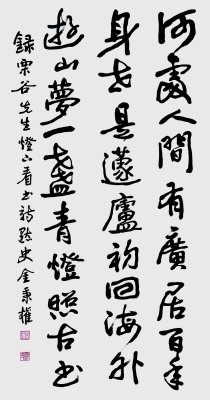 何處人間有廣居百年
身世是蘧廬初回海外
遊山夢一盞青燈照古書
錄栗谷先生燈下看書詩史金秉權